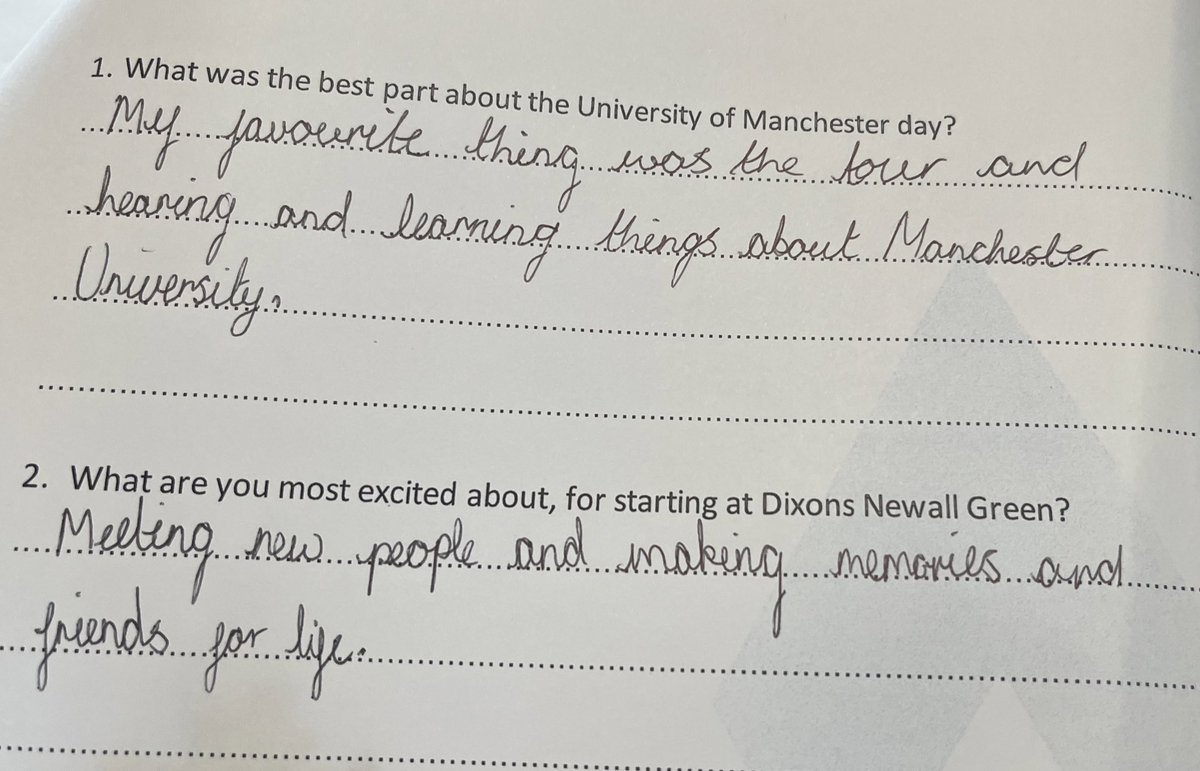 1. What was the best part about the University of Manchester day?
My favourite thing was the tour and
hearing and learning things about Manchester
University.
2. What are you most excited about, for starting at Dixons Newall Green?
Meeting new people and making memories and
friends for life.